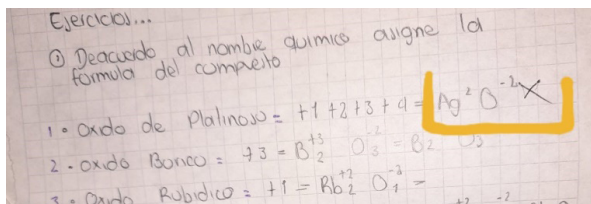 Ejercicios...
① Deacuerdo al nombre químico asigne la
formula del compuesto
1. Oxido de Platinoso = +1 +2 +3 +4 = Ag² O⁻² X
2. Oxido Borico = +3 = B₂⁺³ O₃⁻² = B₂ O₃
3. Oxido Rubidico = +1 = Rb₂⁺² O₁⁻² =
+2 -2